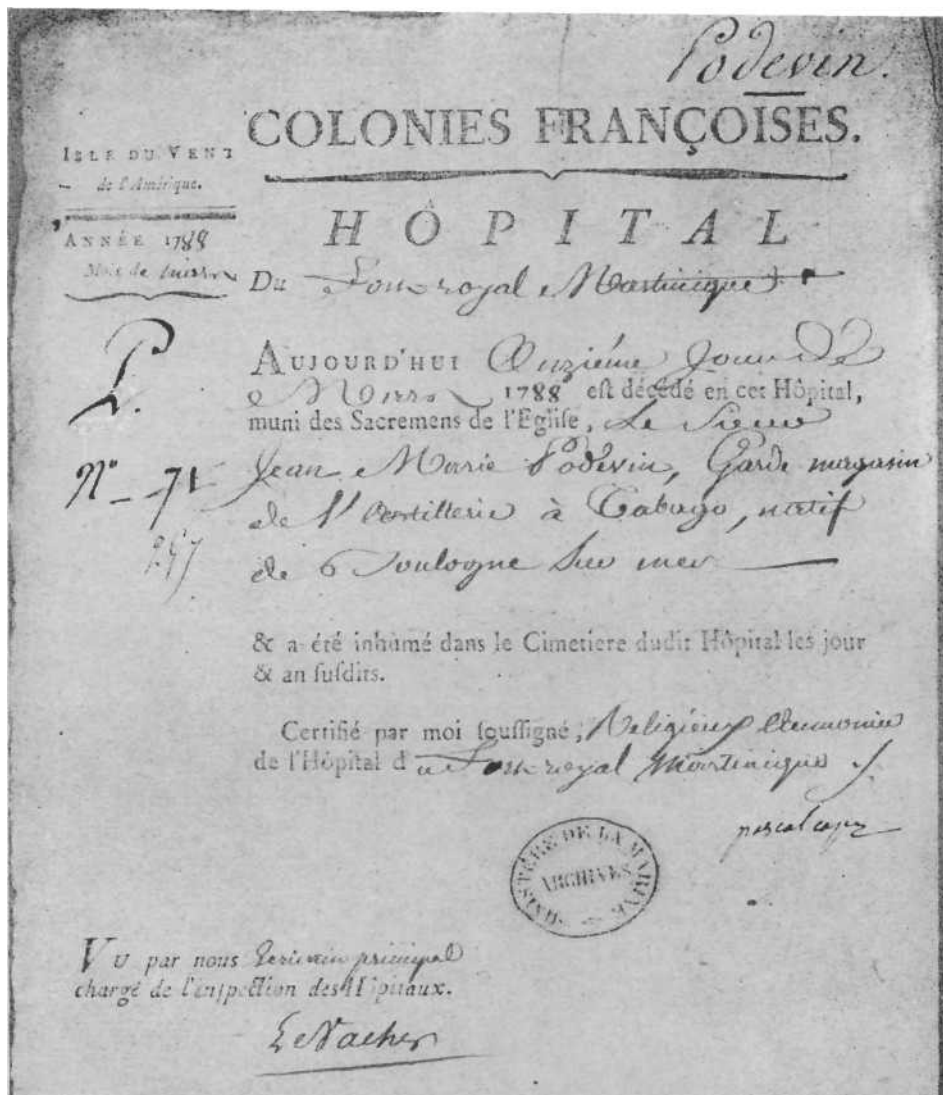 Podevin.
COLONIES FRANÇOISES.
ISLE DU VENT
de l'Amérique.
ANNÉE 1788
Mois de
HÔPITAL
Du Fort royal Martinique
P.
AUJOURD'HUI Onziéme Jour De
Mars 1788 est décédé en cet Hôpital,
muni des Sacremens de l'Eglise, Le Sieur
N° 71 Jean Marie Podevin, Garde magasin
de l'Artillerie à Tabago, natif
247
de Boulogne Sur mer
& a été inhumé dans le Cimetiere dudit Hôpital les jour
& an susdits.
Certifié par moi soussigné, Religieux Aumonier
de l'Hôpital du Fort royal Martinique
MINISTÈRE DE LA MARINE
ARCHIVES
VU par nous Ecrivain principal
chargé de l'inspection des Hôpitaux.
LeVacher